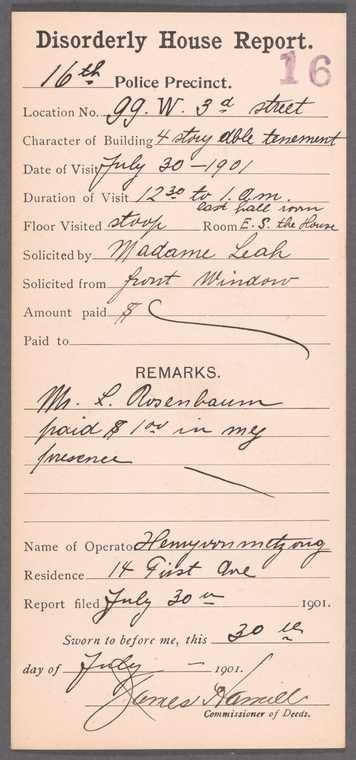 Disorderly House Report.
16
16th Police Precinct.
Location No. 99. W. 3d street
Character of Building 4 story dble tenement
Date of Visit July 30 - 1901
Duration of Visit 12 30 to 1. a.m.
last hall room
Floor Visited stoop Room E. S. the House
Solicited by Madame Leah
Solicited from front Window
Amount paid $
Paid to
REMARKS.
Mr. L. Rosenbaum
paid $ 1 00 in my
presence
Name of Operator Henry von
Residence 14 First Ave
Report filed July 30 th 1901.
Sworn to before me, this 30 th
day of July - 1901.
James Hamill
Commissioner of Deeds.